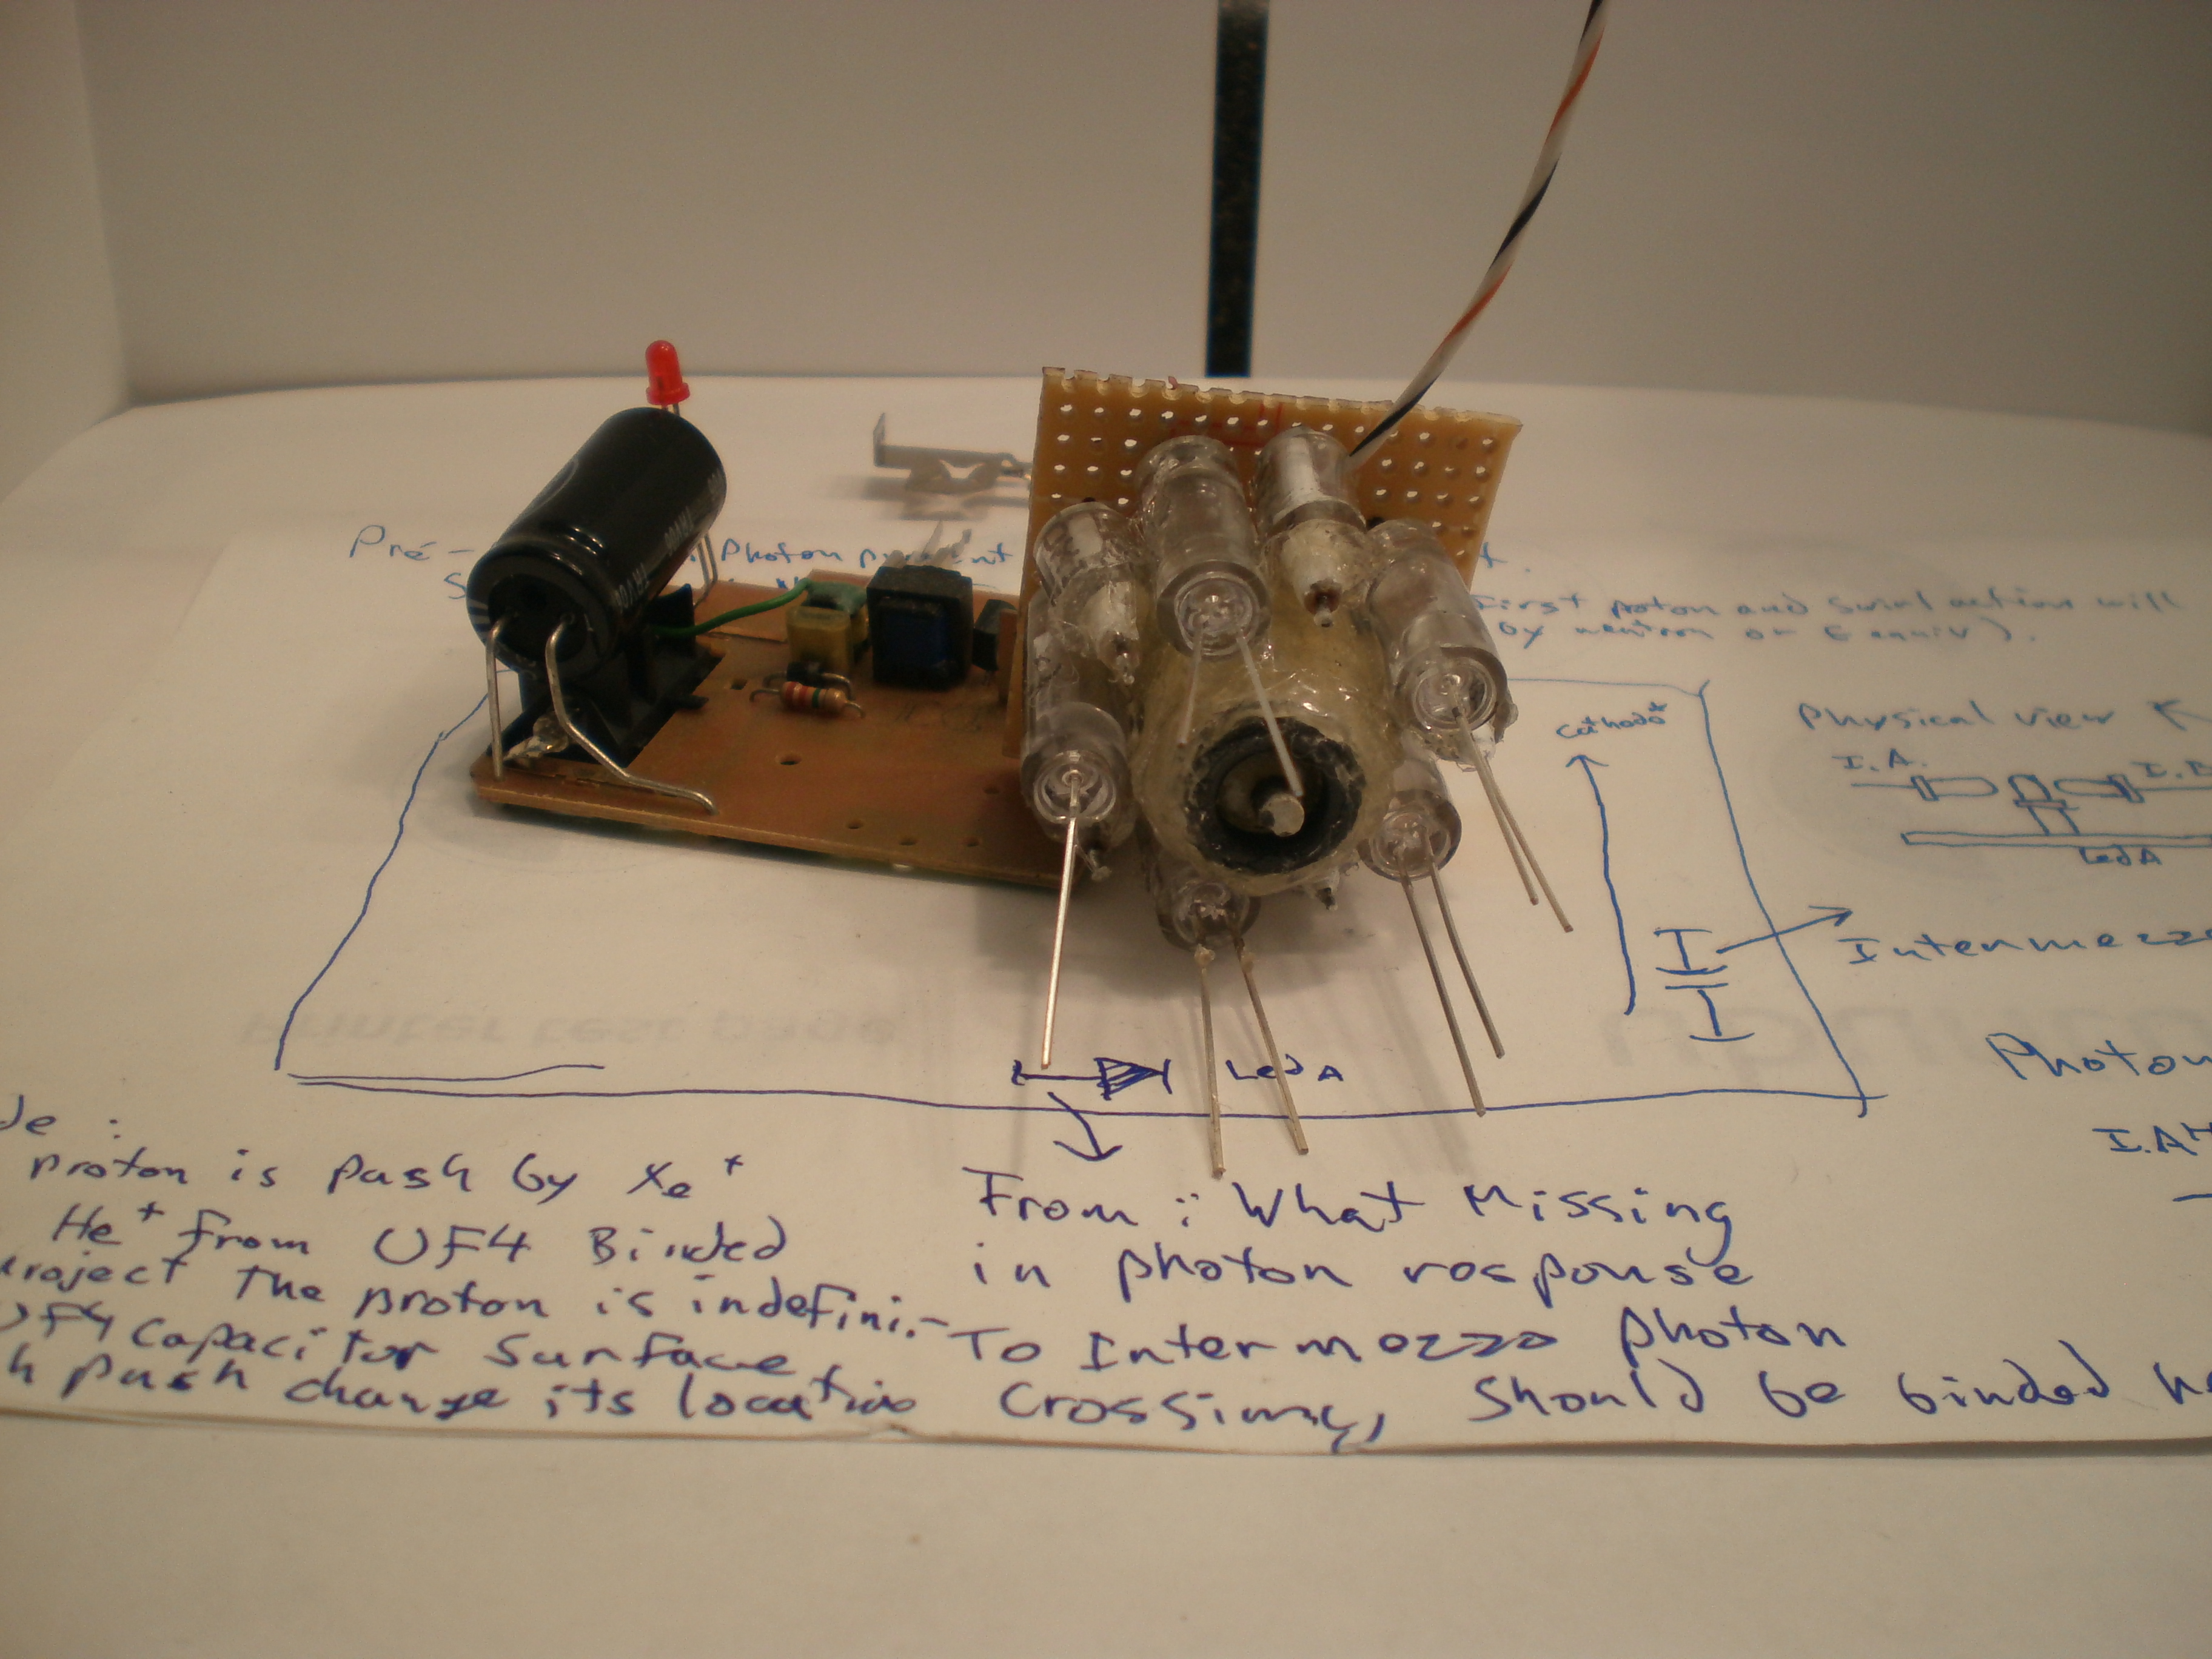 Pré- Photon
First proton and swirl action will
by neutron or
Cathode+
Physical view
I.A.
Led A
I
Intermezzo
I
Printer test page
Photon
Led A
de :
proton is push by Xe+
He+ from UF4 Binded
roject The proton is indefini.-
UF4 Capacitor Surface
h push change its location
From : What Missing
in photon response
To Intermezzo photon
Crossing, Should be binded